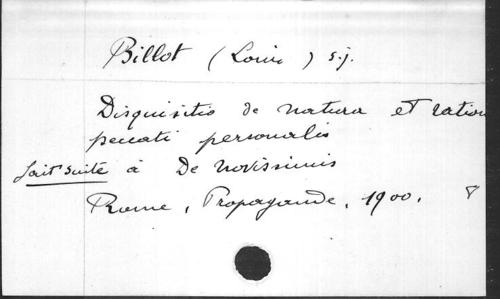 Billot (Louis) s.j.
Disquisitio de natura et ration
peccati personalis
fait suite à De novissimis
Rome, Propagande, 1900. 8